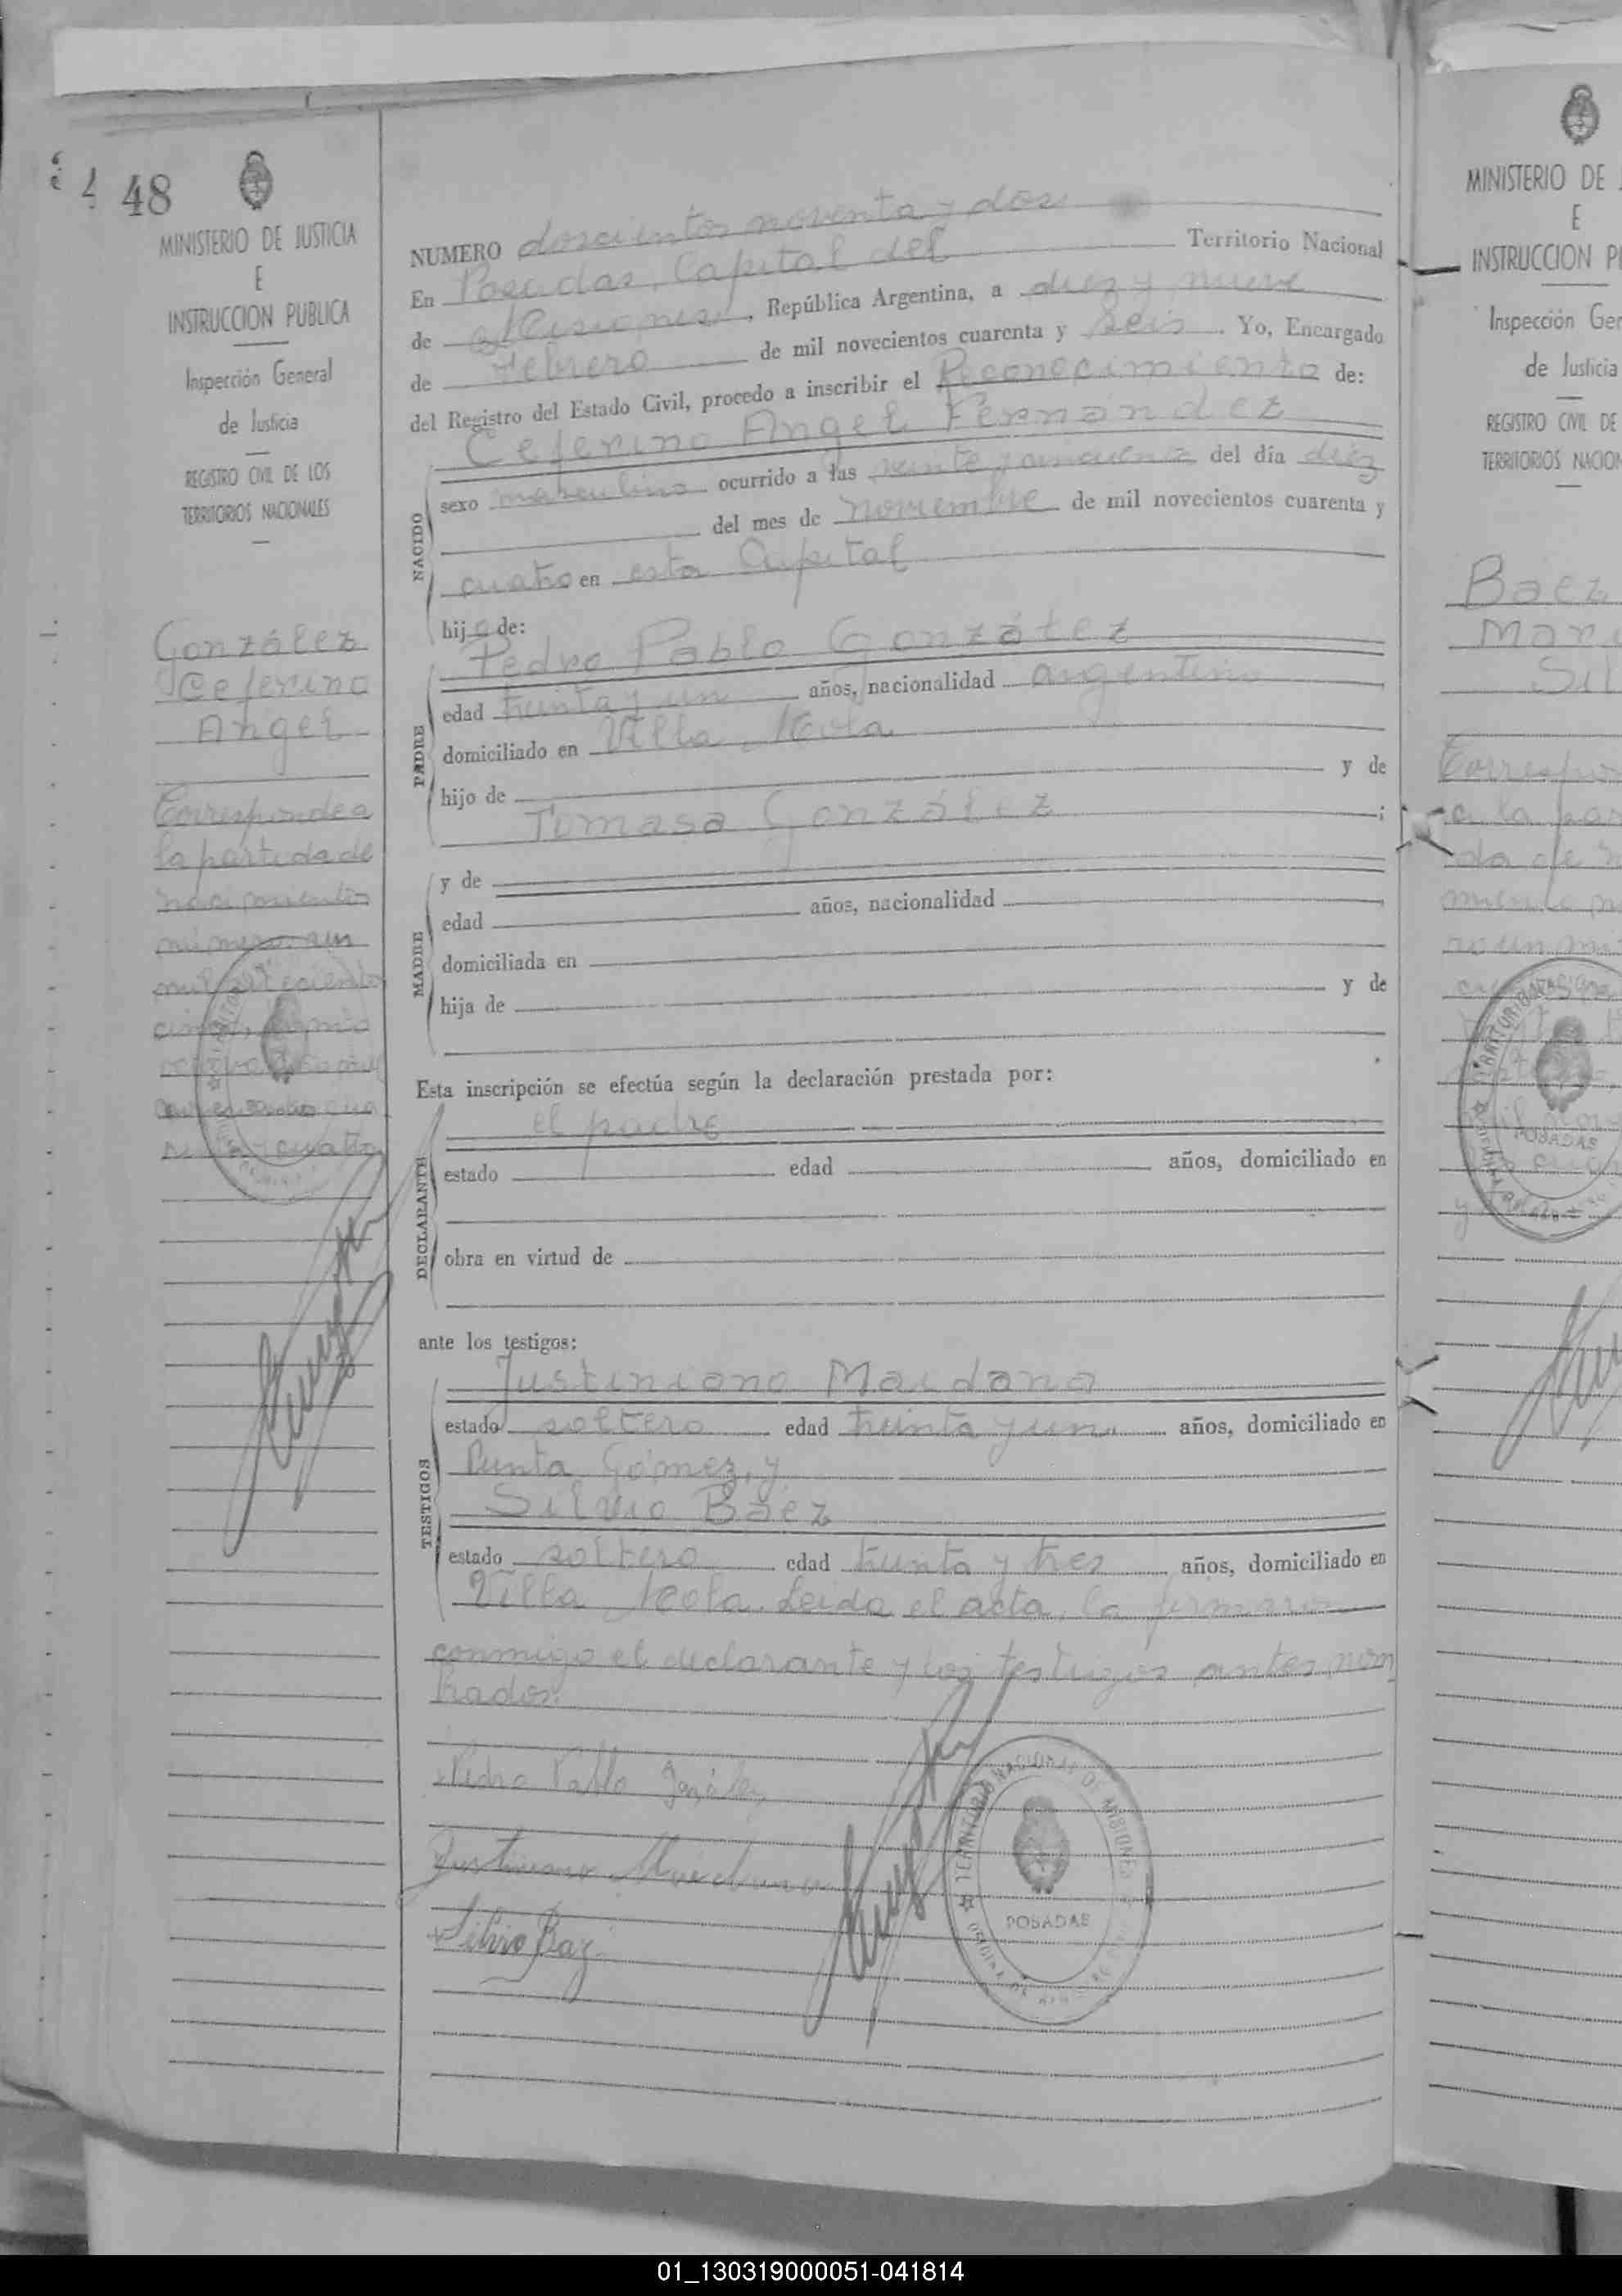 48
MINISTERIO DE JUSTICIA
E
INSTRUCCION PUBLICA
Inspección General
de Justicia
REGISTRO CIVIL DE LOS
TERRITORIOS NACIONALES
González
Ceferino
Angel
Corresponde a
la partida de
nacimientos
número un
mil setecientos
cuatro
NUMERO doscientos noventa y dos
En Posadas, Capital del Territorio Nacional
de Misiones, República Argentina, a diez y nueve
de Febrero de mil novecientos cuarenta y seis. Yo, Encargado
del Registro del Estado Civil, procedo a inscribir el Reconocimiento de:
Ceferino Angel Fernández
NACIDO
sexo masculino ocurrido a las veinte y cincuenta del día diez
del mes de noviembre de mil novecientos cuarenta y
cuatro en esta Capital
hijo de:
Pedro Pablo González
PADRE
edad treinta y un años, nacionalidad argentino
domiciliado en Villa Mola
hijo de y de
Tomasa González ;
MADRE
y de
edad años, nacionalidad
domiciliada en
hija de y de
Esta inscripción se efectúa según la declaración prestada por:
el padre
DECLARANTE
estado edad años, domiciliado en
obra en virtud de
ante los testigos:
Justiniano Maidana
TESTIGOS
estado soltero edad treinta y un años, domiciliado en
Punta Gómez, y
Silvio Báez
estado soltero edad treinta y tres años, domiciliado en
Villa Mola. Leida el acta, la firmaron
conmigo el declarante y los testigos antes nom
brados.
Pedro Pablo González
Justiniano Maidana
Silvio Baez
TERRITORIO NACIONAL DE MISIONES
POSADAS
MINISTERIO DE
E
INSTRUCCION
Inspección
de Justicia
REGISTRO CIVIL DE
TERRITORIOS
Baez
Sil
a la
POSADAS
01_130319000051-041814